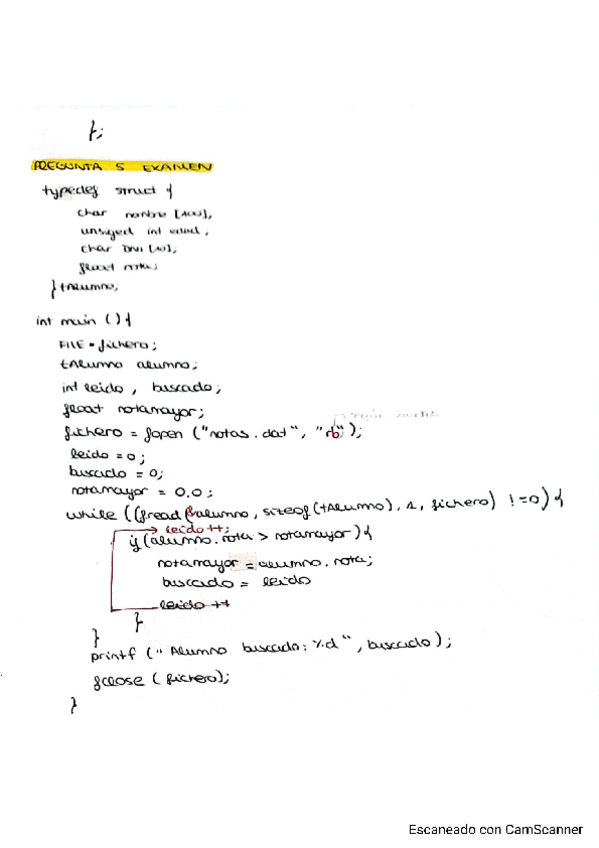 };
PREGUNTA 5 EXAMEN
typedef struct {
char nombre [100],
unsiged int edad,
char DNI [10],
float nota;
} tAlumno;
int main () {
FILE * fichero;
tAlumno alumno;
int leido, buscado;
float notamayor;
fichero = fopen ("notas.dat", "rb");
leido = 0;
buscado = 0;
notamayor = 0.0;
while ((fread(&alumno, sizeof(tAlumno), 1, fichero) != 0) {
leido ++;
if (alumno.nota > notamayor) {
notamayor = alumno.nota;
buscado = leido
leido ++
}
}
printf ("Alumno buscado: %d", buscado);
fclose (fichero);
}
Escaneado con CamScanner